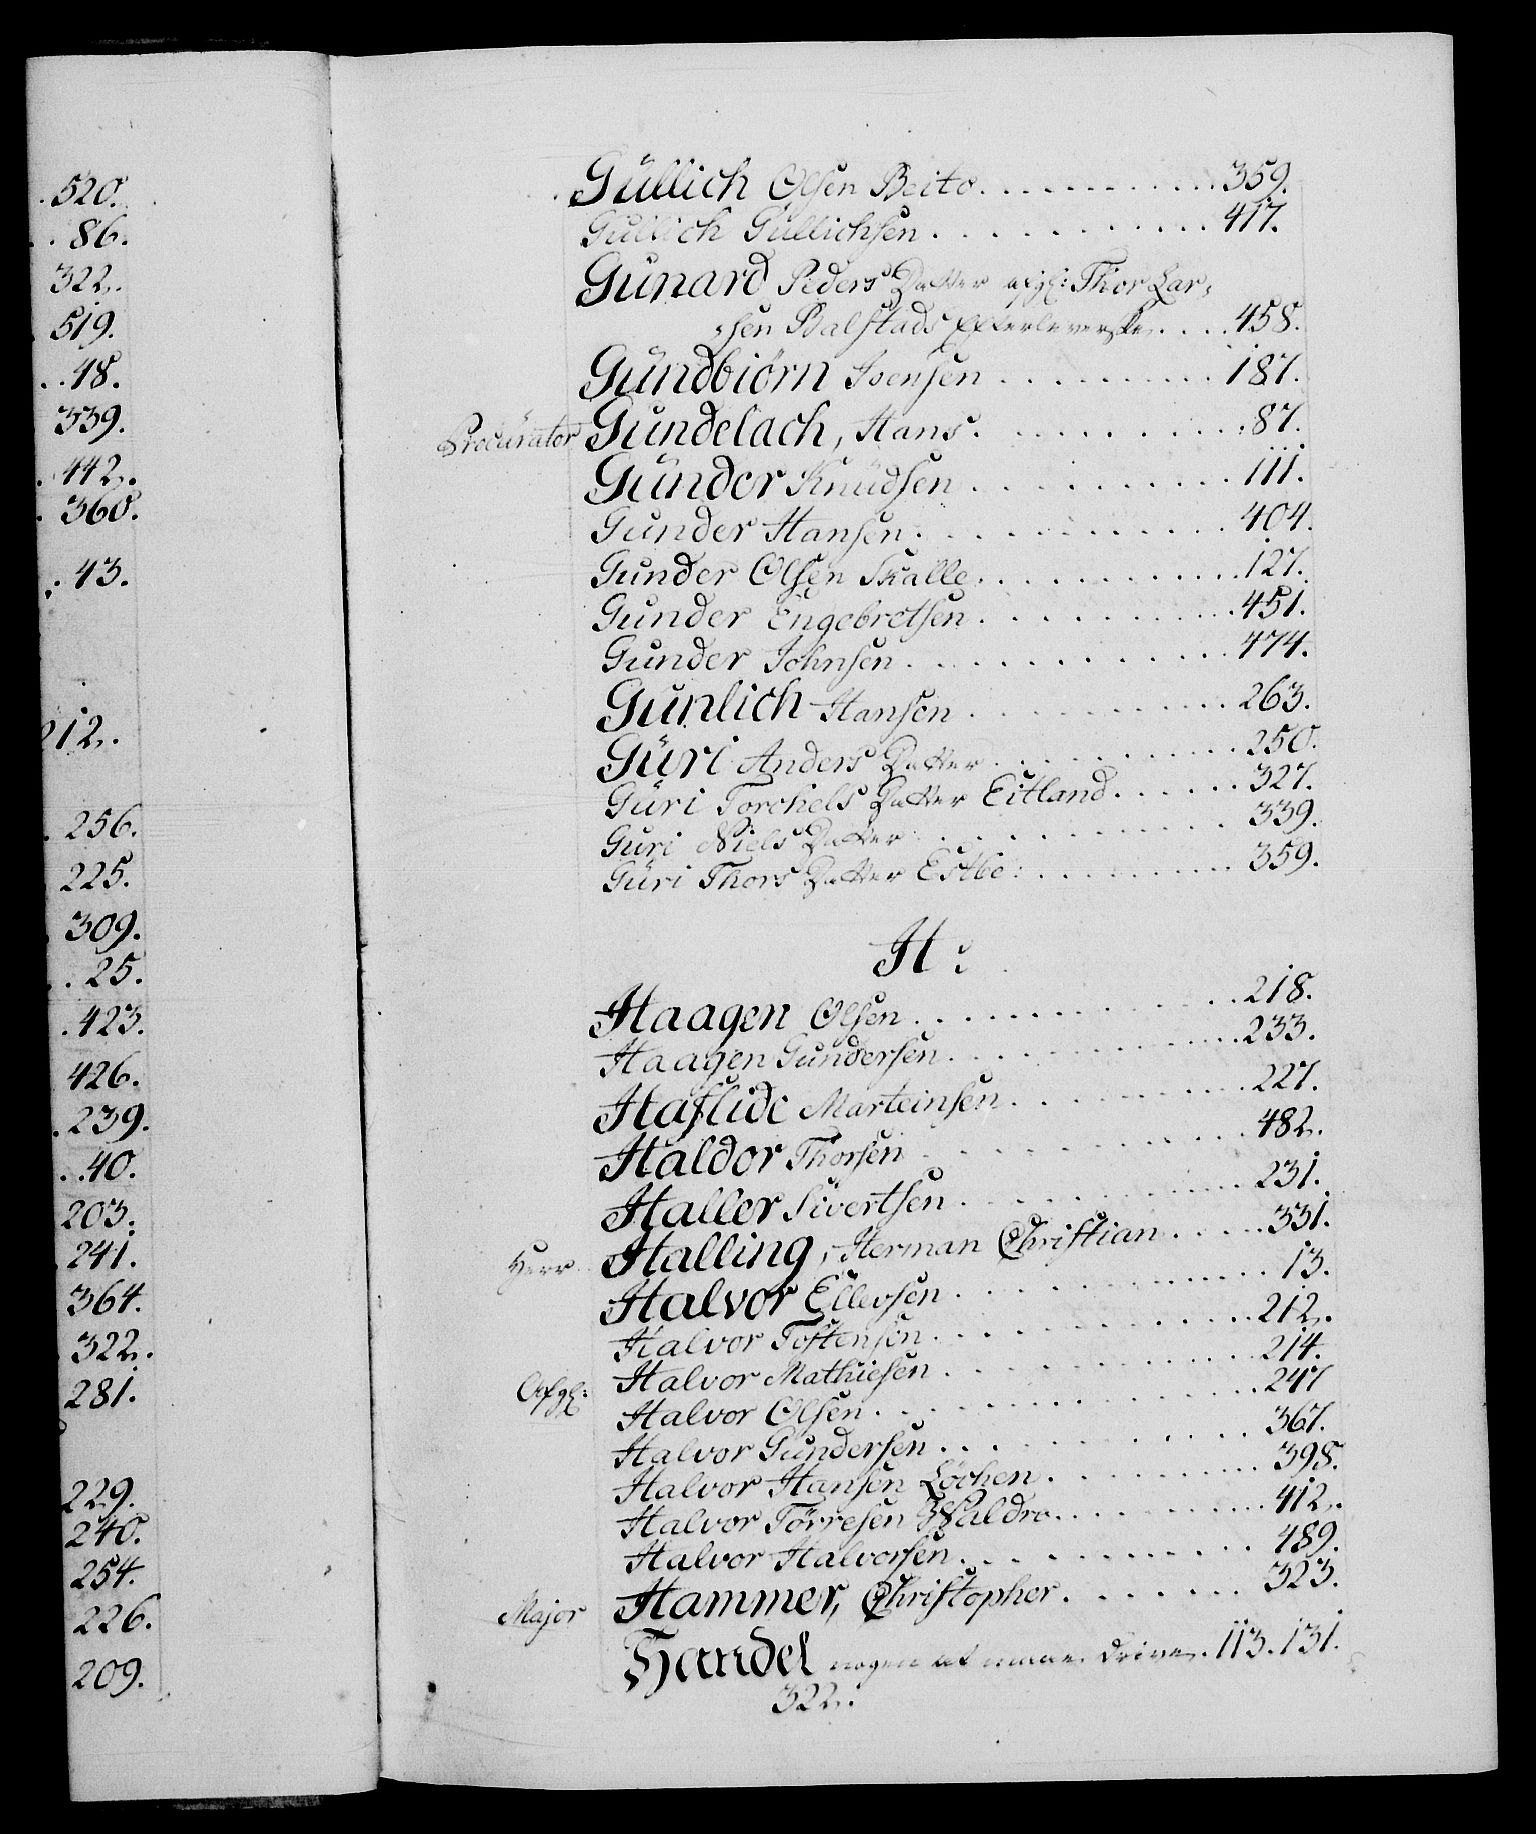 520.
86.
322.
519.
48.
339.
442.
360.
43.
212.
256.
225.
309.
25.
423.
426.
239.
40.
203.
241.
364.
322.
281.
229.
240.
254.
226.
209.
Güllich Olsen Beito. . . . . . . . . . . 359.
Gullich Güllichsen . . . . . . . . . . . 417.
Gunard Peders Datter afgl: Thor Lar,
,sen Balstads Efterleverske. . . . 458.
Gündbiörn Ivensen . . . . . . . . . 187.
Procürator Gundelach, Hans. . . . . . . . . . 87.
Günder Knüdsen . . . . . . . . . . 111.
Gunder Hansen. . . . . . . . . . . 404.
Gunder Olsen Skalle. . . . . . . . . . 127.
Gunder Engebretsen . . . . . . . . . . 451.
Gunder Johnsen . . . . . . . . . . . 474.
Gunlich Hansen . . . . . . . . . . 263.
Güri Anders Datter . . . . . . . . . . 250.
Güri Torchels Datter Eitland. . . . . . 327.
Guri Niels Datter . . . . . . . . . . . 339.
Güri Thors Datter Estbe: . . . . . . . . . 359.
H:
Haagen Olsen . . . . . . . . . . . 218.
Haagen Gundersen . . . . . . . . . . 233.
Haflide Marteinsen . . . . . . . . . 227.
Haldor Thorsen . . . . . . . . . . 482.
Haller Sivertsen . . . . . . . . . . 231.
Herr Halling, Herman Christian . . . . . 331.
Halvor Ellevsen . . . . . . . . . . . 13.
Halvor Tostensen . . . . . . . . . . . 212.
Afgl: Halvor Mathiesen . . . . . . . . . . 214.
Halvor Olsen . . . . . . . . . . . . 247
Halvor Gundersen . . . . . . . . . . 367.
Halvor Hansen Löchen . . . . . . . . . 398.
Halvor Törresen Waldro. . . . . . . . . 412.
Halvor Halvorsen . . . . . . . . . . 489.
Major Hammer, Christopher . . . . . . . 323.
Handel nogen at maae drive. 113. 131.
322.